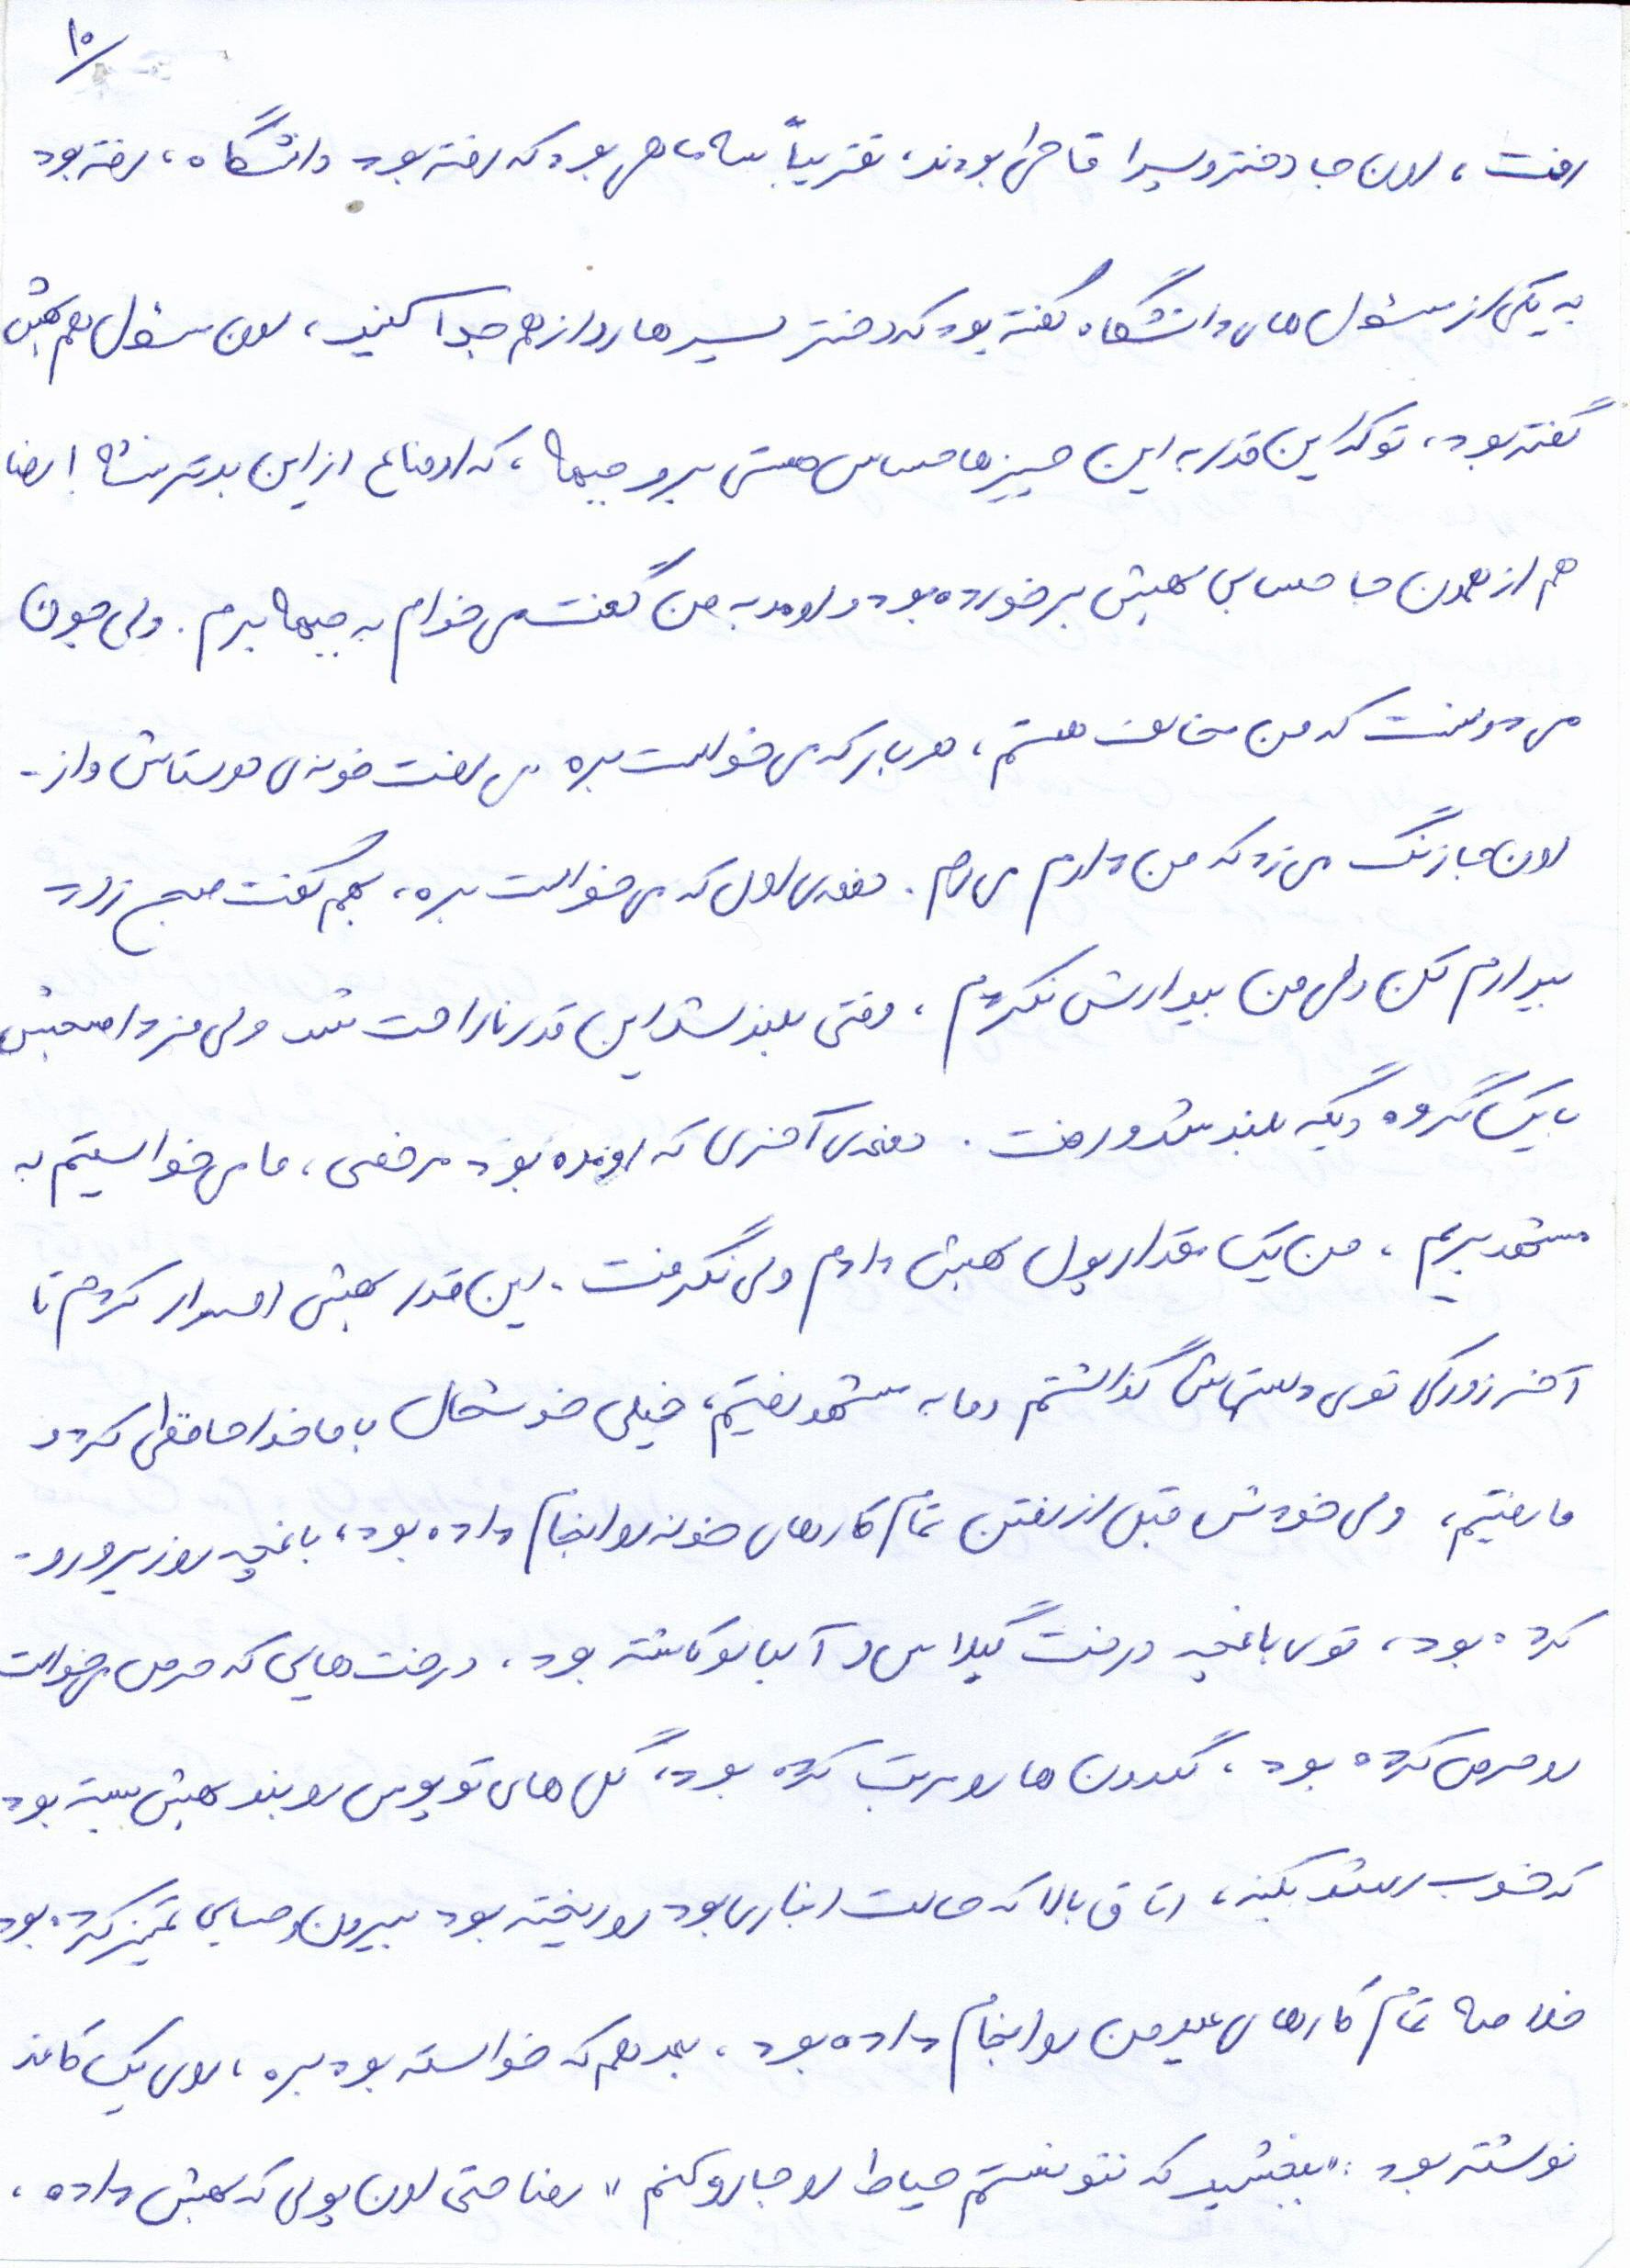 ۱۰
رفت، اون جا دختر و پسرا قاطی بودند، تقریباً سه ماهی بود که رفته بود دانشگاه، رفته بود
به یکی از مسئول های دانشگاه گفته بود که دختر پسرها رو از هم جدا کنید، اون مسئول هم بهش
گفته بود، تو که این قدر به این چیزها حساس هستی برو جبهه، که اوضاع از این بدتر نشه! رضا
هم از همون جا حسابی بهش برخورده بود و اومد به من گفت می خوام به جبهه برم. ولی چون
می دونست که من مخالف هستم، هر بار که می خواست بره می رفت خونه ی دوستاش و از -
اون جا زنگ می زد که من دارم می رم. دفعه ی اول که می خواست بره، بهم گفت صبح زود
بیدارم کن ولی من بیدارش نکردم، وقتی بلند شد این قدر ناراحت شد ولی فردا صبحش
با یک گروه دیگه بلند شد و رفت. دفعه ی آخری که اومده بود مرخصی، ما می خواستیم به
مشهد بریم، من یک مقدار پول بهش دادم ولی نگرفت. این قدر بهش اصرار کردم تا
آخر زورکی توی دستهاش گذاشتم و ما به مشهد رفتیم، خیلی خوشحال با ما خداحافظی کرد و
ما رفتیم، ولی خودش قبل از رفتن تمام کارهای خونه رو انجام داده بود، باغچه رو زیر و رو -
کرده بود، توی باغچه درخت گیلاس و آلبالو کاشته بود، درخت هایی که هرس می خواست
رو هرس کرده بود، گلدون ها رو مرتب کرده بود، گل های تو پوس رو بند بهش بسته بود
که خوب رشد بکنه، اتاق بالا که حالت انباری بود رو ریخته بود بیرون و حسابی تمیز کرده بود
خلاصه تمام کارهای عید من رو انجام داده بود، بعد هم که خواسته بود بره، روی یک کاغذ
نوشته بود: "ببخشید که نتونستم حیاط رو جارو کنم" رضا حتی اون پولی که بهش داده،